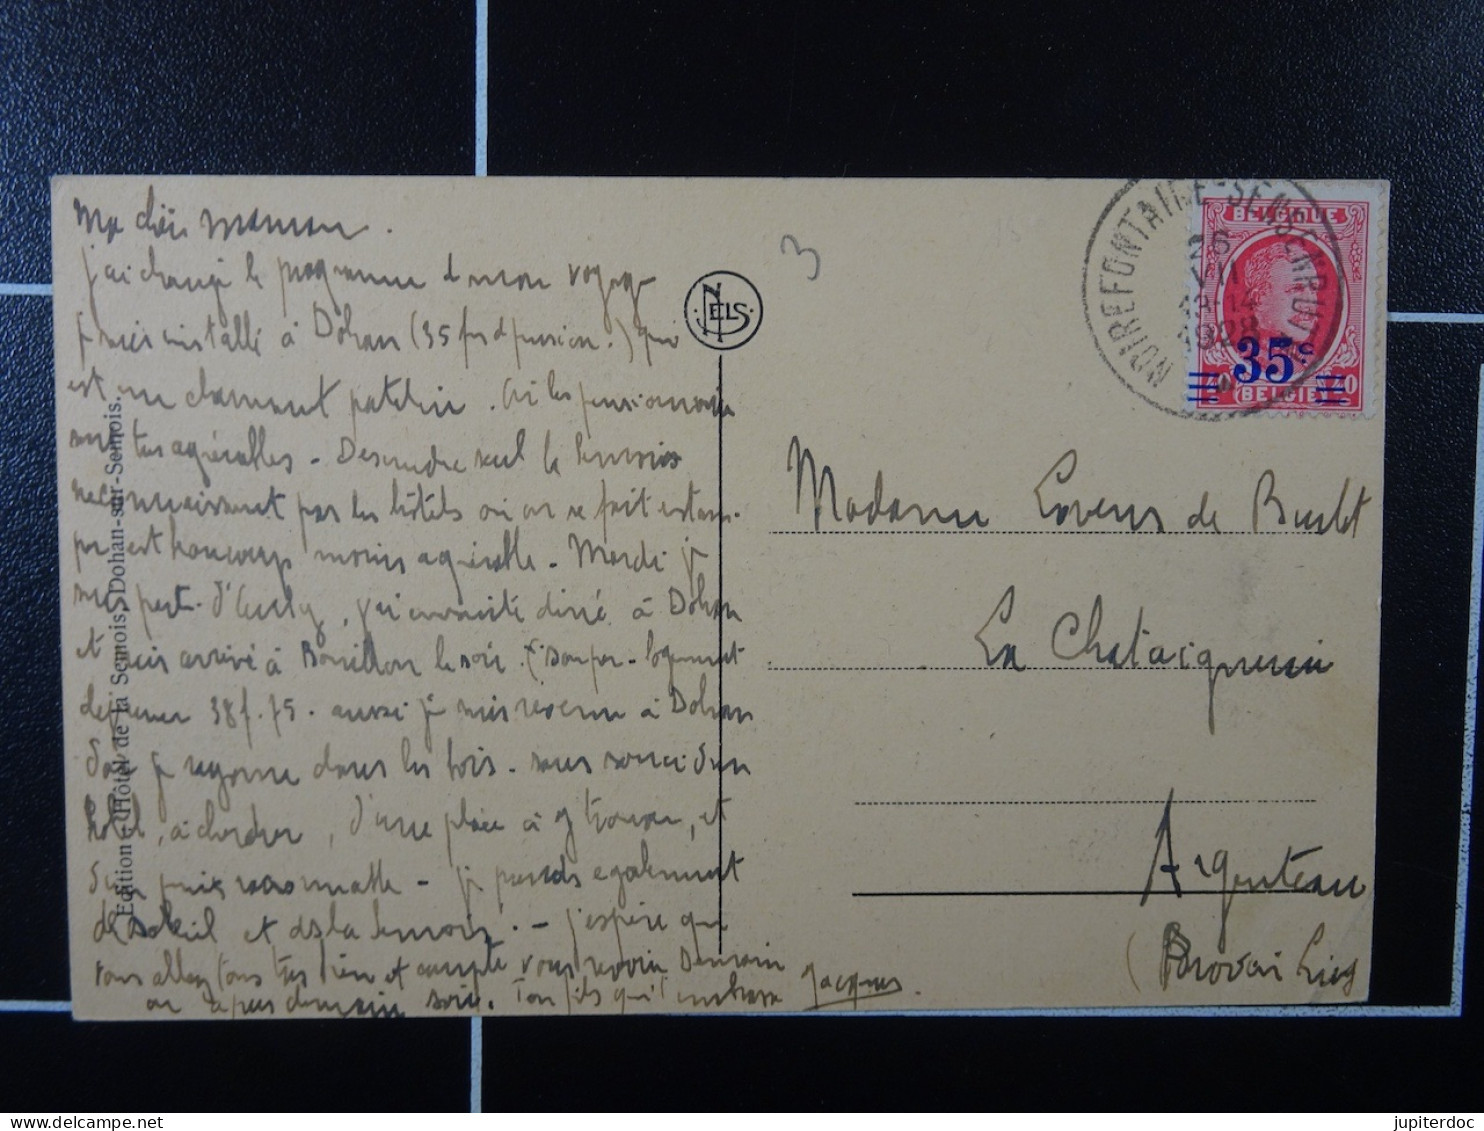 Ma chère maman.
j'ai changé le programme de mon voyage
je suis installé à Dohan (35 frs de pension.) qui
est un charmant patelin. Ici les pensionnaires
sont très agréables - Descendre seul la Semois
par les hôtels où on se fait estam-
per est beaucoup moins agréable. Mardi je
suis parti d' j'ai ensuite diné à Dohan
et suis arrivé à Bouillon le soir. (Souper - logement
dejeuner 38f.75. aussi je suis revenu à Dohan
d'où je rayonne dans les bois - sans souci d'un
hôtel à chercher, d'une place à y trouver, et
d'un prix raisonnable - je prends également
de soleil et de la Semois. - j'espère que
vous allez tous très bien et compte vous revoir Demain
ou après demain soir. Ton fils qui t'embrasse Jacques.
Edition: Hôtel de la Semois, Dohan-sur-Semois.
NELS
3
NOIREFONTAINE-SENSENRUTH
26
VII
13-14
1928
BELGIQUE
35c
20
BELGIE
Madame de
La Chataigneraie
Argenteau
(Prov. Liég
jupiterdoc